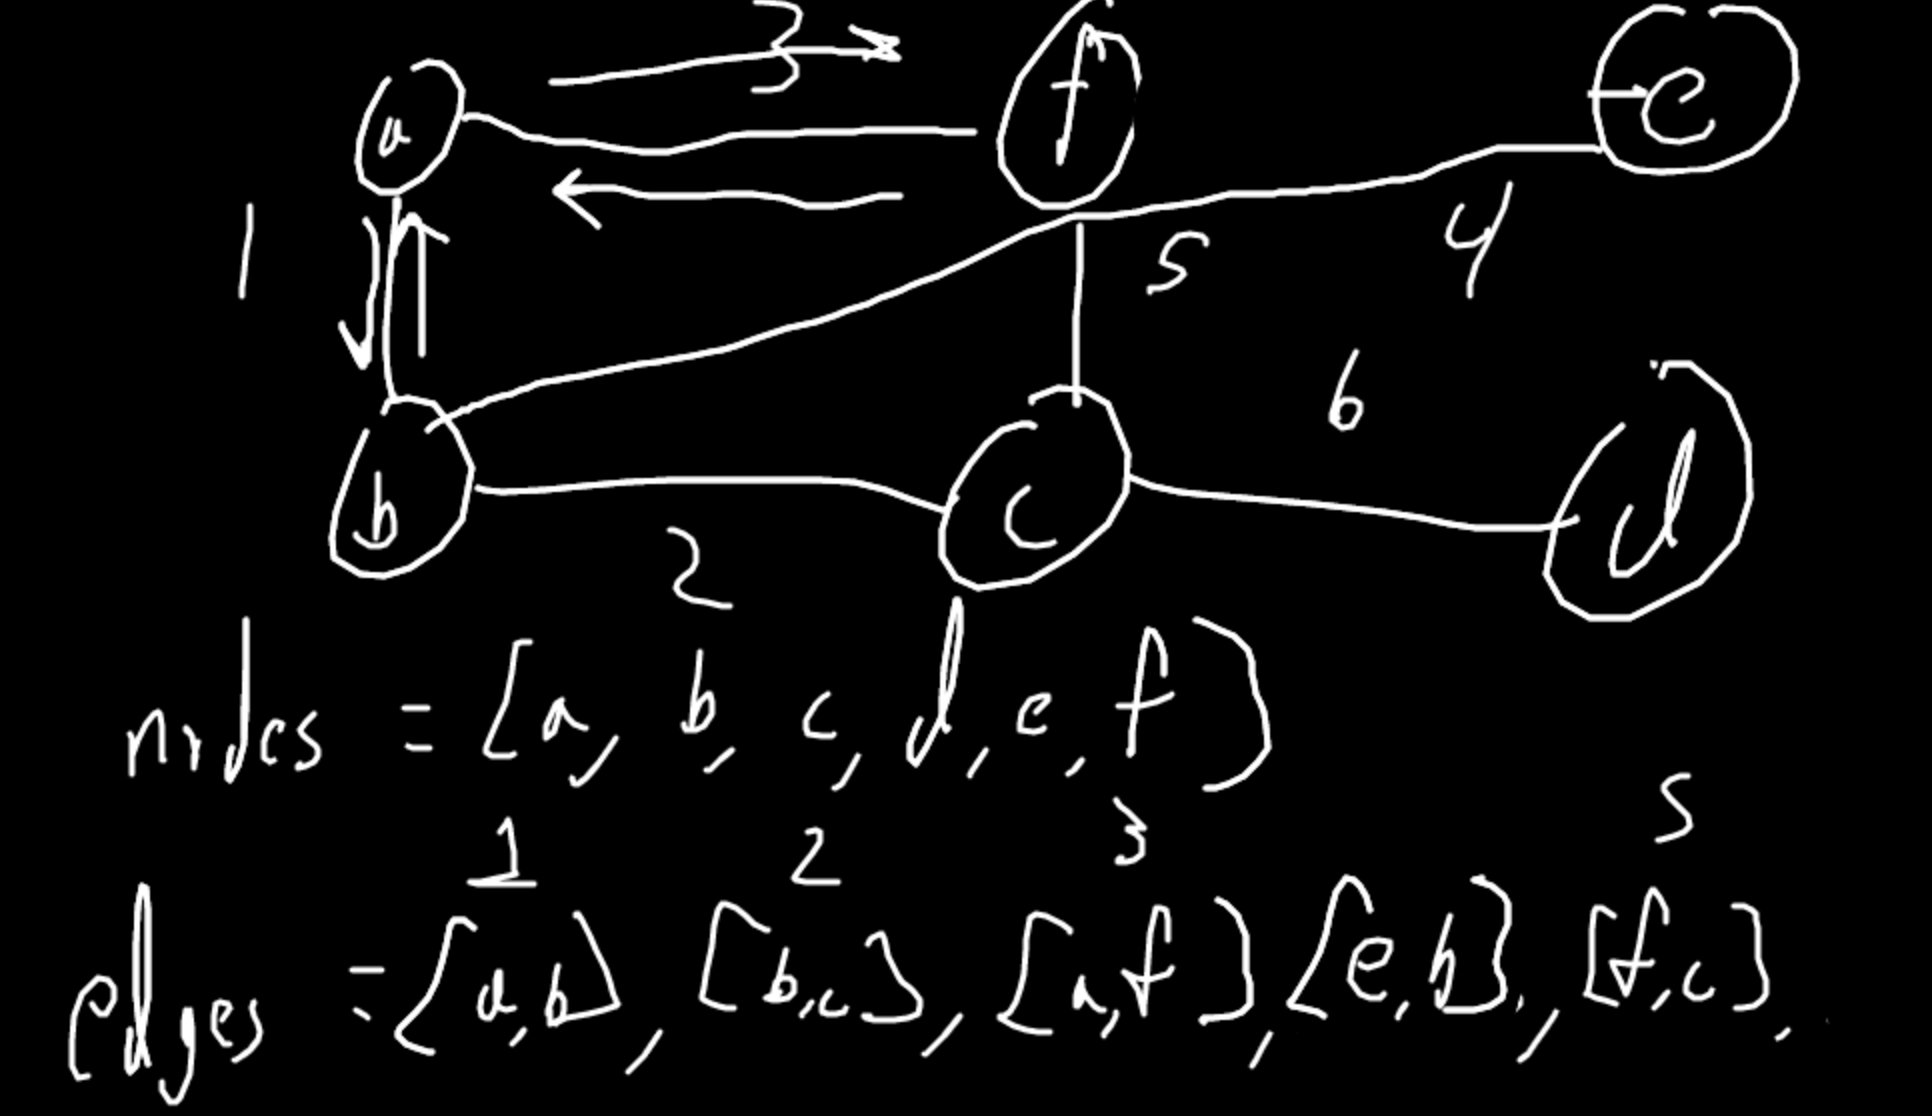 3
a
f
e
1
5
4
6
b
c
d
2
nodes = [a, b, c, d, e, f]
1 2 3 5
edges = [a,b], [b,c], [a,f], [e,b], [f,c],